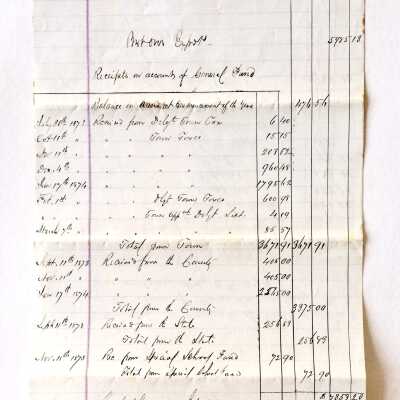 5925.18
Receipts on accounts of General Fund
Balance on account commencement of the year 476.56
1873 Received from Delqt Town Tax 6.40
Oct 11th " " " Town Taxes 15.15
" " " " 208.52
Dec 4th " " " " 960.48
Jan 17th 1874 " " " 1795.62
Feb. 1st " " Delqt Town Taxes 600.98
" " " Town Delqt List. 4.19
March 7th " " " 85.57
Total from Town 3671.91 3671.91
Sept. 11th 1873 Received from the County 405.00
Nov. 11th " " " " 405.00
Jan 17th 1874 " " "
Total from the County 3375.00
Sept 11th 1873 Received from the State 256.89
Total from the State 256.89
Nov. 11th 1873 Rec from Special School Fund 72.90
Total from special school fund 72.90
$7853.26